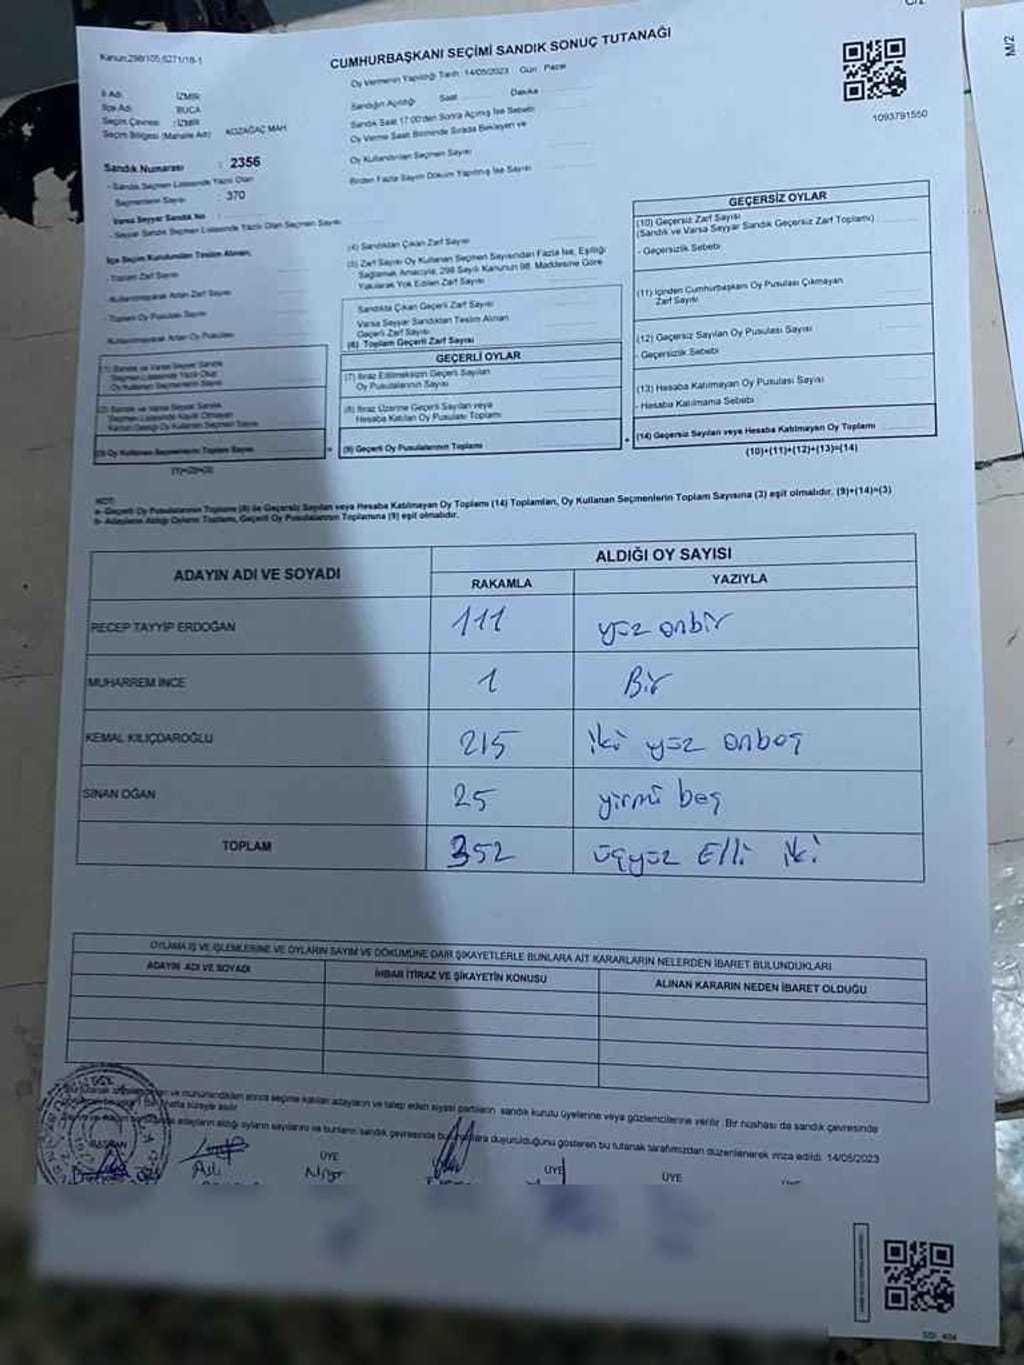 C/2
M/2
Kanun:298/105;6271/18-1
CUMHURBAŞKANI SEÇİMİ SANDIK SONUÇ TUTANAĞI
1093791550
İl Adı : İZMİR
İlçe Adı : BUCA
Seçim Çevresi : İZMİR
Seçim Bölgesi (Mahalle Adı) : KOZAĞAÇ MAH.
Sandık Numarası : 2356
- Sandık Seçmen Listesinde Yazılı Olan
Seçmenlerin Sayısı : 370
Varsa Seyyar Sandık No :
- Seyyar Sandık Seçmen Listesinde Yazılı Olan Seçmen Sayısı
Oy Vermenin Yapıldığı Tarih :14/05/2023 Gün : Pazar
Sandığın Açıldığı Saat Dakika
Sandık Saat 17:00'den Sonra Açılmış İse Sebebi
Oy Verme Saati Bitiminde Sırada Bekleyen ve
Oy Kullandırılan Seçmen Sayısı
Birden Fazla Sayım Döküm Yapılmış İse Sayısı
İlçe Seçim Kurulundan Teslim Alınan;
- Toplam Zarf Sayısı
- Kullanılmayarak Artan Zarf Sayısı
- Toplam Oy Pusulası Sayısı
- Kullanılmayarak Artan Oy Pusulası
(1) Sandık ve Varsa Seyyar Sandık
Seçmen Listesinde Yazılı Olup
Oy Kullanan Seçmenlerin Sayısı
(2) Sandık ve Varsa Seyyar Sandık
Seçmen Listesinde Kayıtlı Olmayan
Kanun Gereği Oy Kullanan Seçmen Sayısı
(3) Oy Kullanan Seçmenlerin Toplam Sayısı
(1)+(2)=(3)
(4) Sandıktan Çıkan Zarf Sayısı
(5) Zarf Sayısı Oy Kullanan Seçmen Sayısından Fazla İse, Eşitliği
Sağlamak Amacıyla, 298 Sayılı Kanunun 98. Maddesine Göre
Yakılarak Yok Edilen Zarf Sayısı
Sandıkta Çıkan Geçerli Zarf Sayısı
Varsa Seyyar Sandıktan Teslim Alınan
Geçerli Zarf Sayısı
(6) Toplam Geçerli Zarf Sayısı
GEÇERLİ OYLAR
(7) İtiraz Edilmeksizin Geçerli Sayılan
Oy Pusulalarının Sayısı
(8) İtiraz Üzerine Geçerli Sayılan veya
Hesaba Katılan Oy Pusulası Toplamı
(9) Geçerli Oy Pusulalarının Toplamı
GEÇERSİZ OYLAR
(10) Geçersiz Zarf Sayısı
(Sandık ve Varsa Seyyar Sandık Geçersiz Zarf Toplamı)
- Geçersizlik Sebebi
(11) İçinden Cumhurbaşkanı Oy Pusulası Çıkmayan
Zarf Sayısı
(12) Geçersiz Sayılan Oy Pusulası Sayısı
- Geçersizlik Sebebi
(13) Hesaba Katılmayan Oy Pusulası Sayısı
- Hesaba Katılmama Sebebi
(14) Geçersiz Sayılan veya Hesaba Katılmayan Oy Toplamı
(10)+(11)+(12)+(13)=(14)
NOT:
a- Geçerli Oy Pusulalarının Toplamı (9) ile Geçersiz Sayılan veya Hesaba Katılmayan Oy Toplamı (14) Toplamları, Oy Kullanan Seçmenlerin Toplam Sayısına (3) eşit olmalıdır. (9)+(14)=(3)
b- Adayların Aldığı Oyların Toplamı, Geçerli Oy Pusulalarının Toplamına (9) eşit olmalıdır.
ADAYIN ADI VE SOYADI
ALDIĞI OY SAYISI
RAKAMLA YAZIYLA
RECEP TAYYİP ERDOĞAN 111 yüz onbir
MUHARREM İNCE 1 Bir
KEMAL KILIÇDAROĞLU 215 iki yüz onbeş
SİNAN OĞAN 25 yirmi beş
TOPLAM 352 üçyüz Elli iki
OYLAMA İŞ VE İŞLEMLERİNE VE OYLARIN SAYIM VE DÖKÜMÜNE DAİR ŞİKAYETLERLE BUNLARA AİT KARARLARIN NELERDEN İBARET BULUNDUKLARI
ADAYIN ADI VE SOYADI
İHBAR İTİRAZ VE ŞİKAYETİN KONUSU
ALINAN KARARIN NEDEN İBARET OLDUĞU
ve mühürlendikten sonra seçime katılan adayların ve talep eden siyasi partilerin sandık kurulu üyelerine veya gözlemcilerine verilir. Bir nüshası da sandık çevresinde
hafta süreyle asılır.
adayların aldığı oyların sayılarını ve bunların sandık çevresinde duyurulduğunu gösteren bu tutanak tarafımızdan düzenlenerek imza edildi. 14/05/2023
BAŞKAN
Aslı
ÜYE
ÜYE
ÜYE